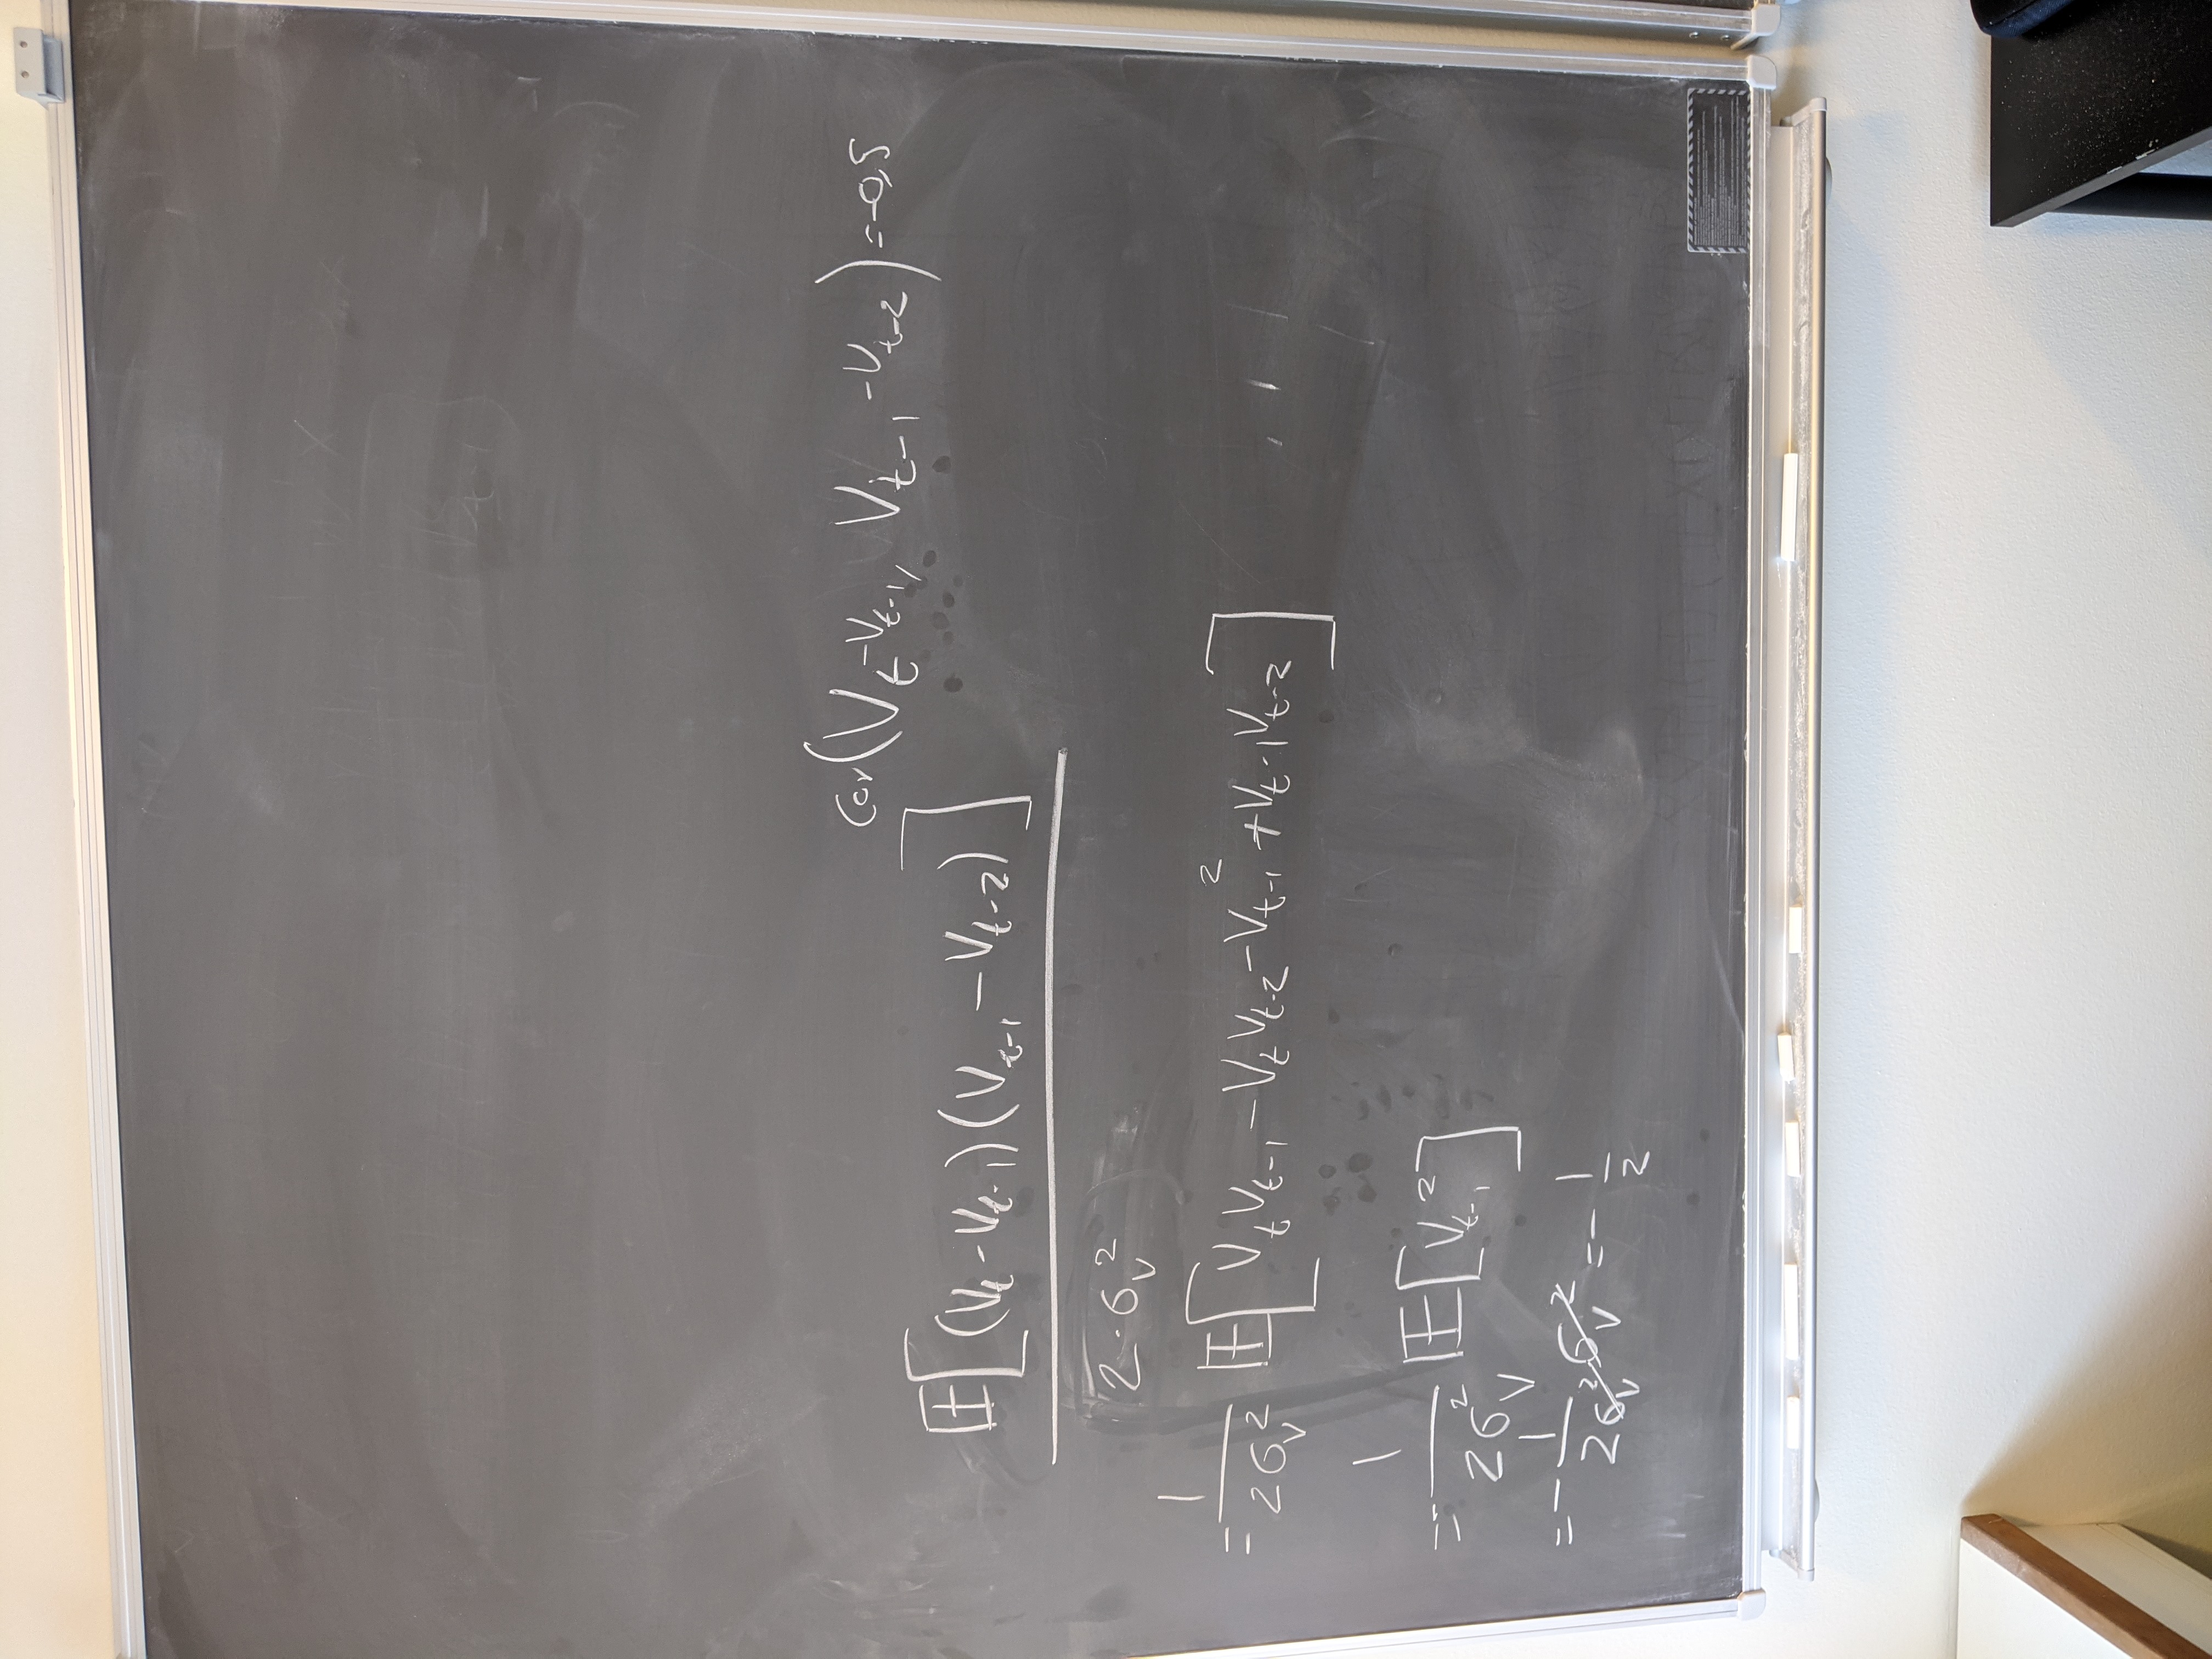 Cor(V_t - V_{t-1}, V_{t-1} - V_{t-2}) = -0,5
𝔼[(V_t - V_{t-1})(V_{t-1} - V_{t-2})]
2·σ_V^2
= 1/(2σ_V^2) 𝔼[V_t V_{t-1} - V_t V_{t-2} - V_{t-1}^2 + V_{t-1} V_{t-2}]
= -1/(2σ_V^2) 𝔼[V_{t-1}^2]
= -1/(2σ_V^2) · σ_V^2 = -1/2